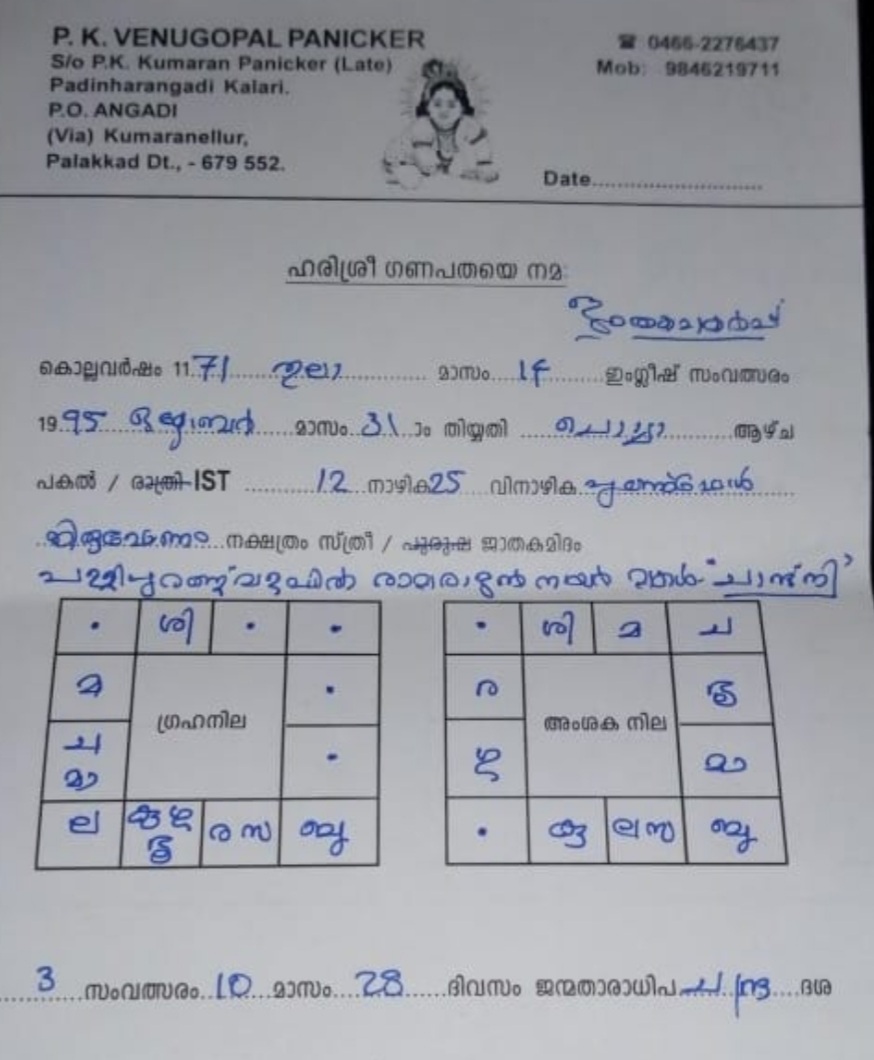 P. K. VENUGOPAL PANICKER
S/o P.K. Kumaran Panicker (Late)
Padinharangadi Kalari.
P.O. ANGADI
(Via) Kumaranellur,
Palakkad Dt., - 679 552.
☎ 0466-2276437
Mob: 9846219711
Date............................
ഹരിശ്രീ ഗണപതയെ നമ:
കൊല്ലവർഷം 11 71 തുലാ മാസം 14 ഇംഗ്ലീഷ് സംവത്സരം
19 95 ഒക്ടോബർ മാസം 31 ാം തിയ്യതി ചൊവ്വാ ആഴ്ച
പകൽ / രാത്രി IST 12 നാഴിക 25 വിനാഴിക
തിരുവോണം നക്ഷത്രം സ്ത്രീ / പുരുഷ ജാതകമിദം
നായർ മകൾ "ചാന്ദ്നി"
• ശി • •
മ •
ഗ്രഹനില
ച മാ •
ല കു ശു ര സ ബു
• ശി മ ച
ര
അംശക നില
ശു മാ
• കു ല സ ബു
3 സംവത്സരം 10 മാസം 28 ദിവസം ജന്മതാരാധിപ ചന്ദ്ര ദശ